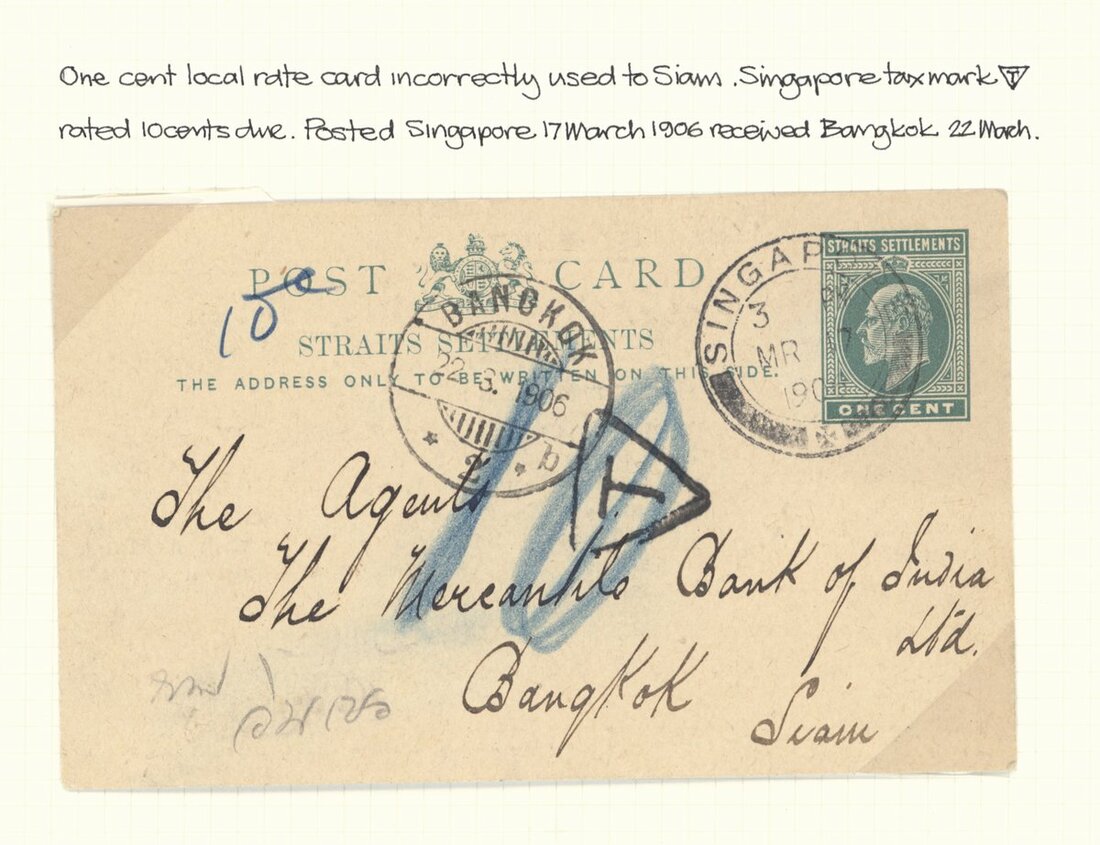 One cent local rate card incorrectly used to Siam. Singapore tax mark T
rated 10cents due. Posted Singapore 17 March 1906 received Bangkok 22 March.
POST CARD
STRAITS SETTLEMENTS
THE ADDRESS ONLY TO BE WRITTEN ON THIS SIDE.
10c
BANGKOK
22.3.1906
2 b
SINGAP
3
MR
190
STRAITS SETTLEMENTS
ONE CENT
10
T
The Agents
The Mercantile Bank of India
Ltd.
Bangkok
Siam